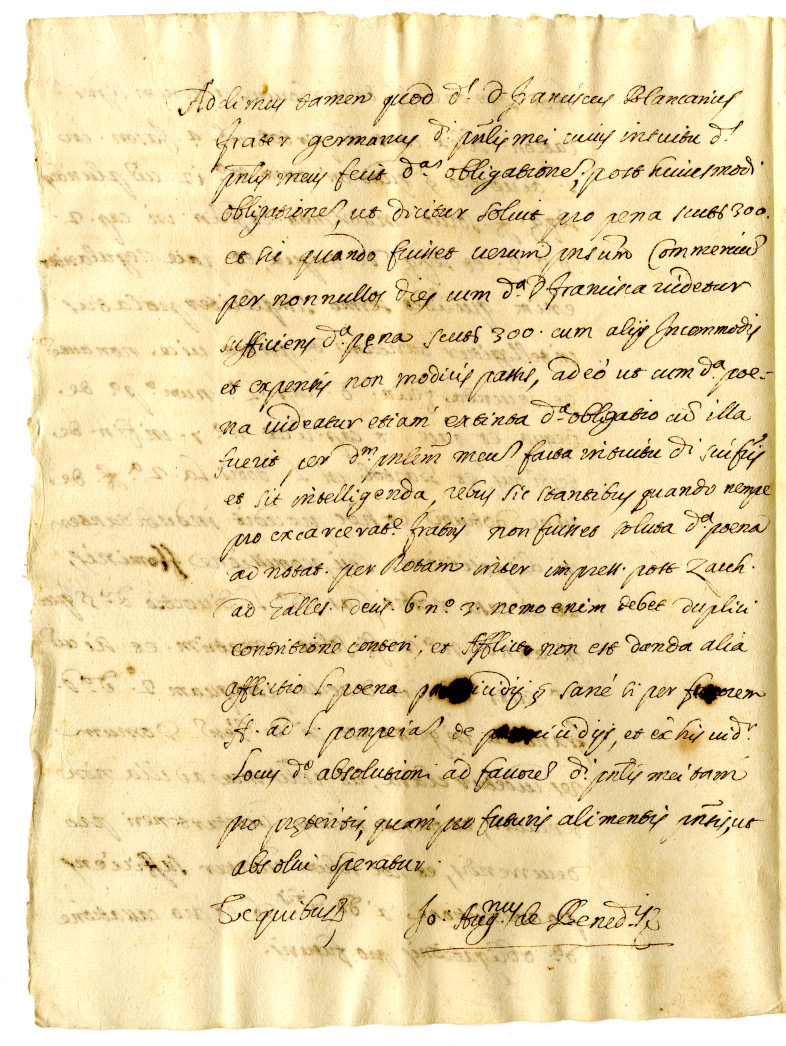 Addimus tamen quod d.s D Franciscus Blancanius
frater germanus d.i pñlis mei cuius intuitu d.s
pñlis meus fecit d.as obligationes, post huiusmodi
obligationes, ut dicitur soluit pro pena scuts 300.
et sic quando fuisset uerum Commerciũ
per nonnullos dies cum d.a D Francisca uidetur
sufficiens d.a pęna scuts 300. cum alijs Incommodis
et expensis non modicis passis, adeò ut cum d.a poe-
na uideatur etiam extinta d.a obligatio cũ illa
fuerit per d.m pñlem meus facta intuitu di sui fris
et sit intelligenda, rebus sic stantibus quando nempe
pro excarcerat.e fratris non fuisset soluta d.a poena
ad notat. per Rotam inter impress. post Zacch.
ad Galles. decis. 6 n.o 3. nemo enim debet duplici
contritione conteri, et Afflicto non est danda alia
afflictio l. poena § sanè si per furorem
ff. ad l. pompeia de et ex his uid.r
locus d.e absolutioni ad fauore d.i pñlis mei tam
pro pręteritis, quam pro futuris alimentis ut
absolui speratur.
Ex quibus Jo. Aug.nus de Bened.is